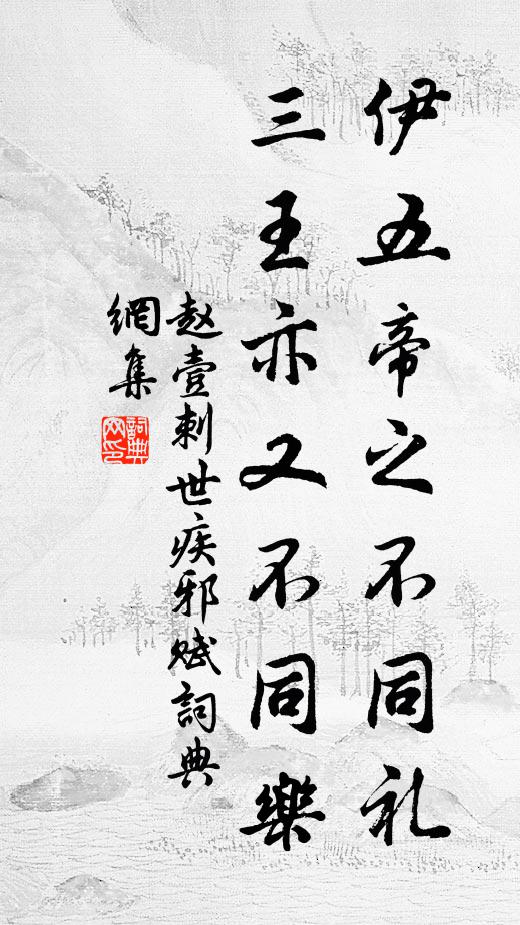 伊五帝之不同礼
三王亦又不同樂
赵壹刺世疾邪赋詞典
網集
詞典
网印